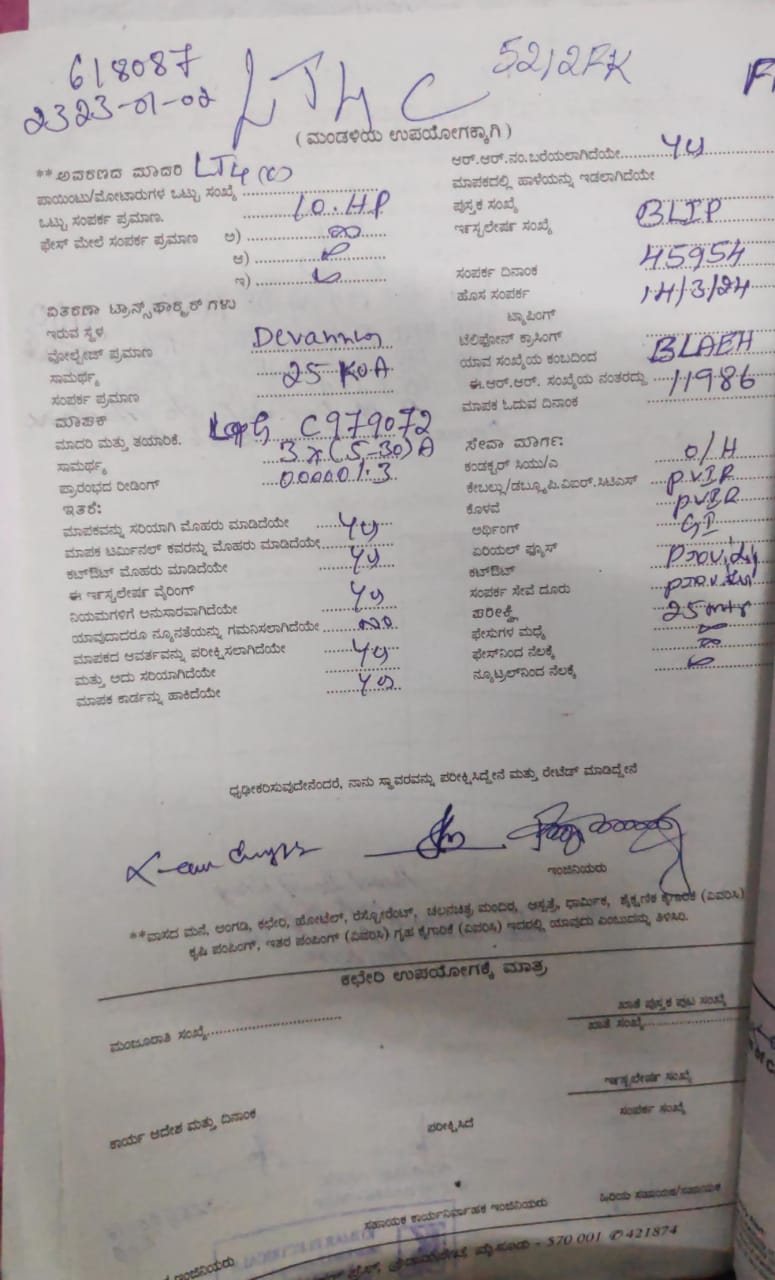 618087
2323-01-02
LT4 C
52/2FK
( ಮಂಡಳಿಯ ಉಪಯೋಗಕ್ಕಾಗಿ )
**ಅವಕರಣದ ಮಾದರಿ LT4(c)
ಪಾಯಿಂಟು/ಮೋಟಾರುಗಳ ಒಟ್ಟು ಸಂಖ್ಯೆ
ಒಟ್ಟು ಸಂಪರ್ಕ ಪ್ರಮಾಣ. 10.HP
ಫೇಸ್ ಮೇಲೆ ಸಂಪರ್ಕ ಪ್ರಮಾಣ ಅ)
ಆ)
ಇ)
ವಿತರಣಾ ಟ್ರಾನ್ಸ್‌ಫಾರ್ಮರ್ ಗಳು
ಇರುವ ಸ್ಥಳ
ವೋಲ್ಟೇಜ್ ಪ್ರಮಾಣ
ಸಾಮರ್ಥ್ಯ 25 KVA
ಸಂಪರ್ಕ ಪ್ರಮಾಣ
ಮಾಪಕ
ಮಾದರಿ ಮತ್ತು ತಯಾರಿಕೆ. L&G C979072
ಸಾಮರ್ಥ್ಯ 3x(5-30)A
ಪ್ರಾರಂಭದ ರೀಡಿಂಗ್ 00001.3
ಇತರೆ:
ಮಾಪಕವನ್ನು ಸರಿಯಾಗಿ ಮೊಹರು ಮಾಡಿದೆಯೇ yes
ಮಾಪಕ ಟರ್ಮಿನಲ್ ಕವರನ್ನು ಮೊಹರು ಮಾಡಿದೆಯೇ
ಕಟ್‌ಔಟ್ ಮೊಹರು ಮಾಡಿದೆಯೇ yes
ಈ ಇನ್ಸ್ಟಲೇಷನ್ ವೈರಿಂಗ್
ನಿಯಮಗಳಿಗೆ ಅನುಸಾರವಾಗಿದೆಯೇ yes
ಯಾವುದಾದರೂ ನ್ಯೂನತೆಯನ್ನು ಗಮನಿಸಲಾಗಿದೆಯೇ No
ಮಾಪಕದ ಆವರ್ತವನ್ನು ಪರೀಕ್ಷಿಸಲಾಗಿದೆಯೇ
ಮತ್ತು ಅದು ಸರಿಯಾಗಿದೆಯೇ yes
ಮಾಪಕ ಕಾರ್ಡನ್ನು ಹಾಕಿದೆಯೇ yes
ಆರ್.ಆರ್.ನಂ.ಬರೆಯಲಾಗಿದೆಯೇ yes
ಮಾಪಕದಲ್ಲಿ ಹಾಳೆಯನ್ನು ಇಡಲಾಗಿದೆಯೇ
ಪುಸ್ತಕ ಸಂಖ್ಯೆ
ಇನ್ಸ್ಟಲೇಷನ್ ಸಂಖ್ಯೆ BLIP
45954
ಸಂಪರ್ಕ ದಿನಾಂಕ
ಹೊಸ ಸಂಪರ್ಕ 14/3/24
ಟ್ಯಾಪಿಂಗ್
ಟೆಲಿಫೋನ್ ಕ್ರಾಸಿಂಗ್
ಯಾವ ಸಂಖ್ಯೆಯ ಕಂಬದಿಂದ BLAEH
ಈ.ಆರ್.ಆರ್. ಸಂಖ್ಯೆಯ ನಂತರದ್ದು 11986
ಮಾಪಕ ಓದುವ ದಿನಾಂಕ
ಸೇವಾ ಮಾರ್ಗ:
ಕಂಡಕ್ಟರ್ ಸಿಯು/ಎ O/H
ಕೇಬಲ್ಲು/ಡಬ್ಲ್ಯೂಪಿ.ವಿಐಆರ್.ಸಿಟಿಎಸ್ P.VIR
ಕೊಳವೆ P.VIR
ಅರ್ಥಿಂಗ್ GI
ಏರಿಯಲ್ ಫ್ಯೂಸ್
ಕಟ್‌ಔಟ್
ಸಂಪರ್ಕ ಸೇವೆ ದೂರು
ಪರೀಕ್ಷೆ 25 mtr
ಫೇಸುಗಳ ಮಧ್ಯೆ
ಫೇಸ್‌ನಿಂದ ನೆಲಕ್ಕೆ
ನ್ಯೂಟ್ರಲ್‌ನಿಂದ ನೆಲಕ್ಕೆ
ಧೃಢೀಕರಿಸುವುದೇನೆಂದರೆ, ನಾನು ಸ್ಥಾವರವನ್ನು ಪರೀಕ್ಷಿಸಿದ್ದೇನೆ ಮತ್ತು ರೇಟೆಡ್ ಮಾಡಿದ್ದೇನೆ
ಇಂಜಿನಿಯರು
**ವಾಸದ ಮನೆ, ಅಂಗಡಿ, ಕಛೇರಿ, ಹೋಟೆಲ್, ರೆಸ್ಟೋರೆಂಟ್, ಚಲನಚಿತ್ರ ಮಂದಿರ, ಆಸ್ಪತ್ರೆ, ಧಾರ್ಮಿಕ, ಶೈಕ್ಷಣಿಕ ಕೈಗಾರಿಕೆ (ವಿವರಿಸಿ)
ಕೃಷಿ ಪಂಪಿಂಗ್, ಇತರ ಪಂಪಿಂಗ್ (ವಿವರಿಸಿ) ಗೃಹ ಕೈಗಾರಿಕೆ (ವಿವರಿಸಿ) ಇದರಲ್ಲಿ ಯಾವುದು ಎಂಬುದನ್ನು ತಿಳಿಸಿರಿ.
ಕಛೇರಿ ಉಪಯೋಗಕ್ಕೆ ಮಾತ್ರ
ಮಂಜೂರಾತಿ ಸಂಖ್ಯೆ
ಖಾತೆ ಪುಸ್ತಕ ಪುಟ ಸಂಖ್ಯೆ
ಖಾತೆ ಸಂಖ್ಯೆ
ಇನ್ಸ್ಟಲೇಷನ್ ಸಂಖ್ಯೆ
ಕಾರ್ಯ ಆದೇಶ ಮತ್ತು ದಿನಾಂಕ
ಪರೀಕ್ಷಿಸಿದೆ
ಸಂಪರ್ಕ ಸಂಖ್ಯೆ
ಇಂಜಿನಿಯರು
ಸಹಾಯಕ ಕಾರ್ಯನಿರ್ವಾಹಕ ಇಂಜಿನಿಯರು
ಹಿರಿಯ ಸಹಾಯಕ/ಸಹಾಯಕ
ಮೈಸೂರು - 570 001 ✆ 421874